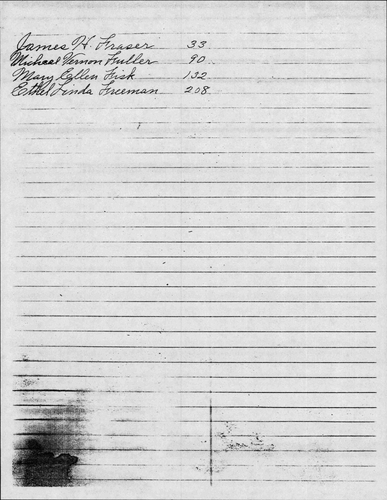 James H. Fraser 33
Micheal Vernon Fuller 90
Mary Ellen Fisk 132
Ethel Linda Freeman 208